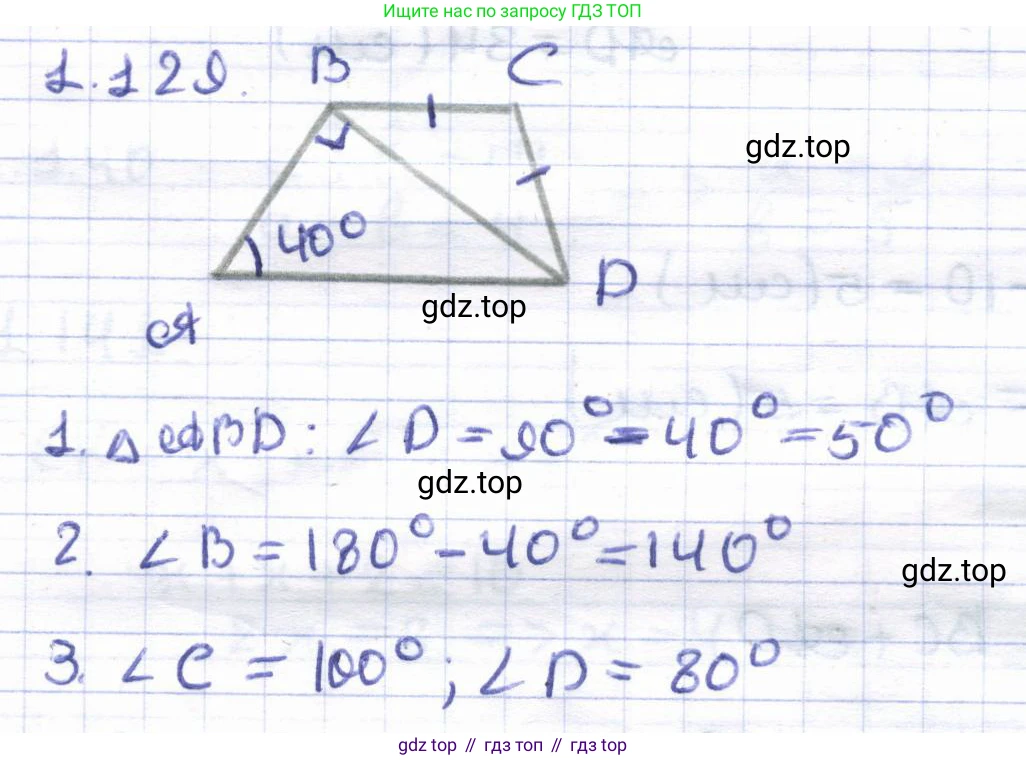 Ищите нас по запросу ГДЗ ТОП
1.129.
B C
gdz.top
40°
D
gdz.top
A
1. △ ABD: ∠D = 90° - 40° = 50°
gdz.top
2. ∠B = 180° - 40° = 140°
gdz.top
3. ∠C = 100°; ∠D = 80°
gdz top // гдз топ // gdz top